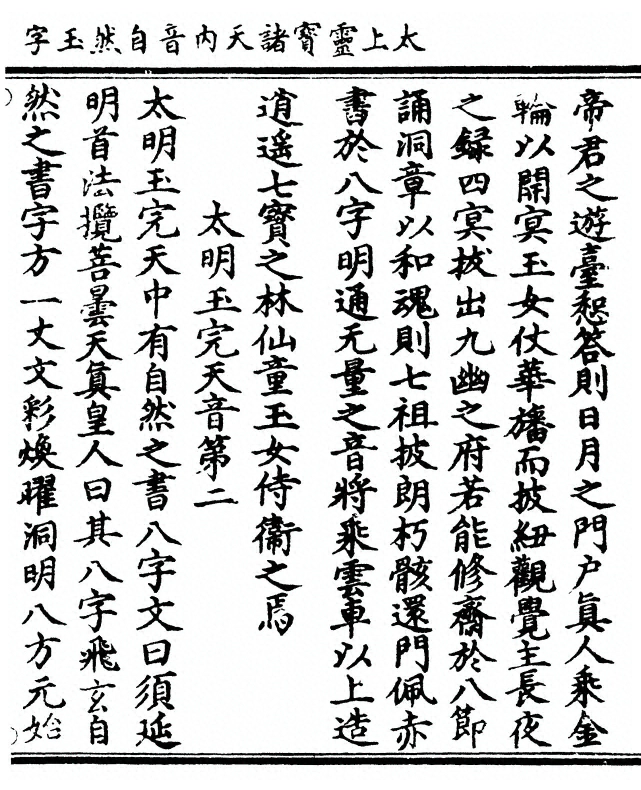 太上靈寶諸天內音自然玉字
帝君之遊臺恕答則日月之門戶真人乘金
輪以開冥玉女仗華旛而披紐觀覺主長夜
之録四冥披出九幽之府若能修齋於八節
誦洞章以和魂則七祖披朗朽骸還門佩赤
書於八字明通无量之音將乘雲車以上造
逍遥七寳之林仙童玉女侍衞之焉
太明玉完天音第二
太明玉完天中有自然之書八字文曰須延
明首法攬菩曇天真皇人曰其八字飛玄自
然之書字方一丈文彩煥曜洞明八方元始